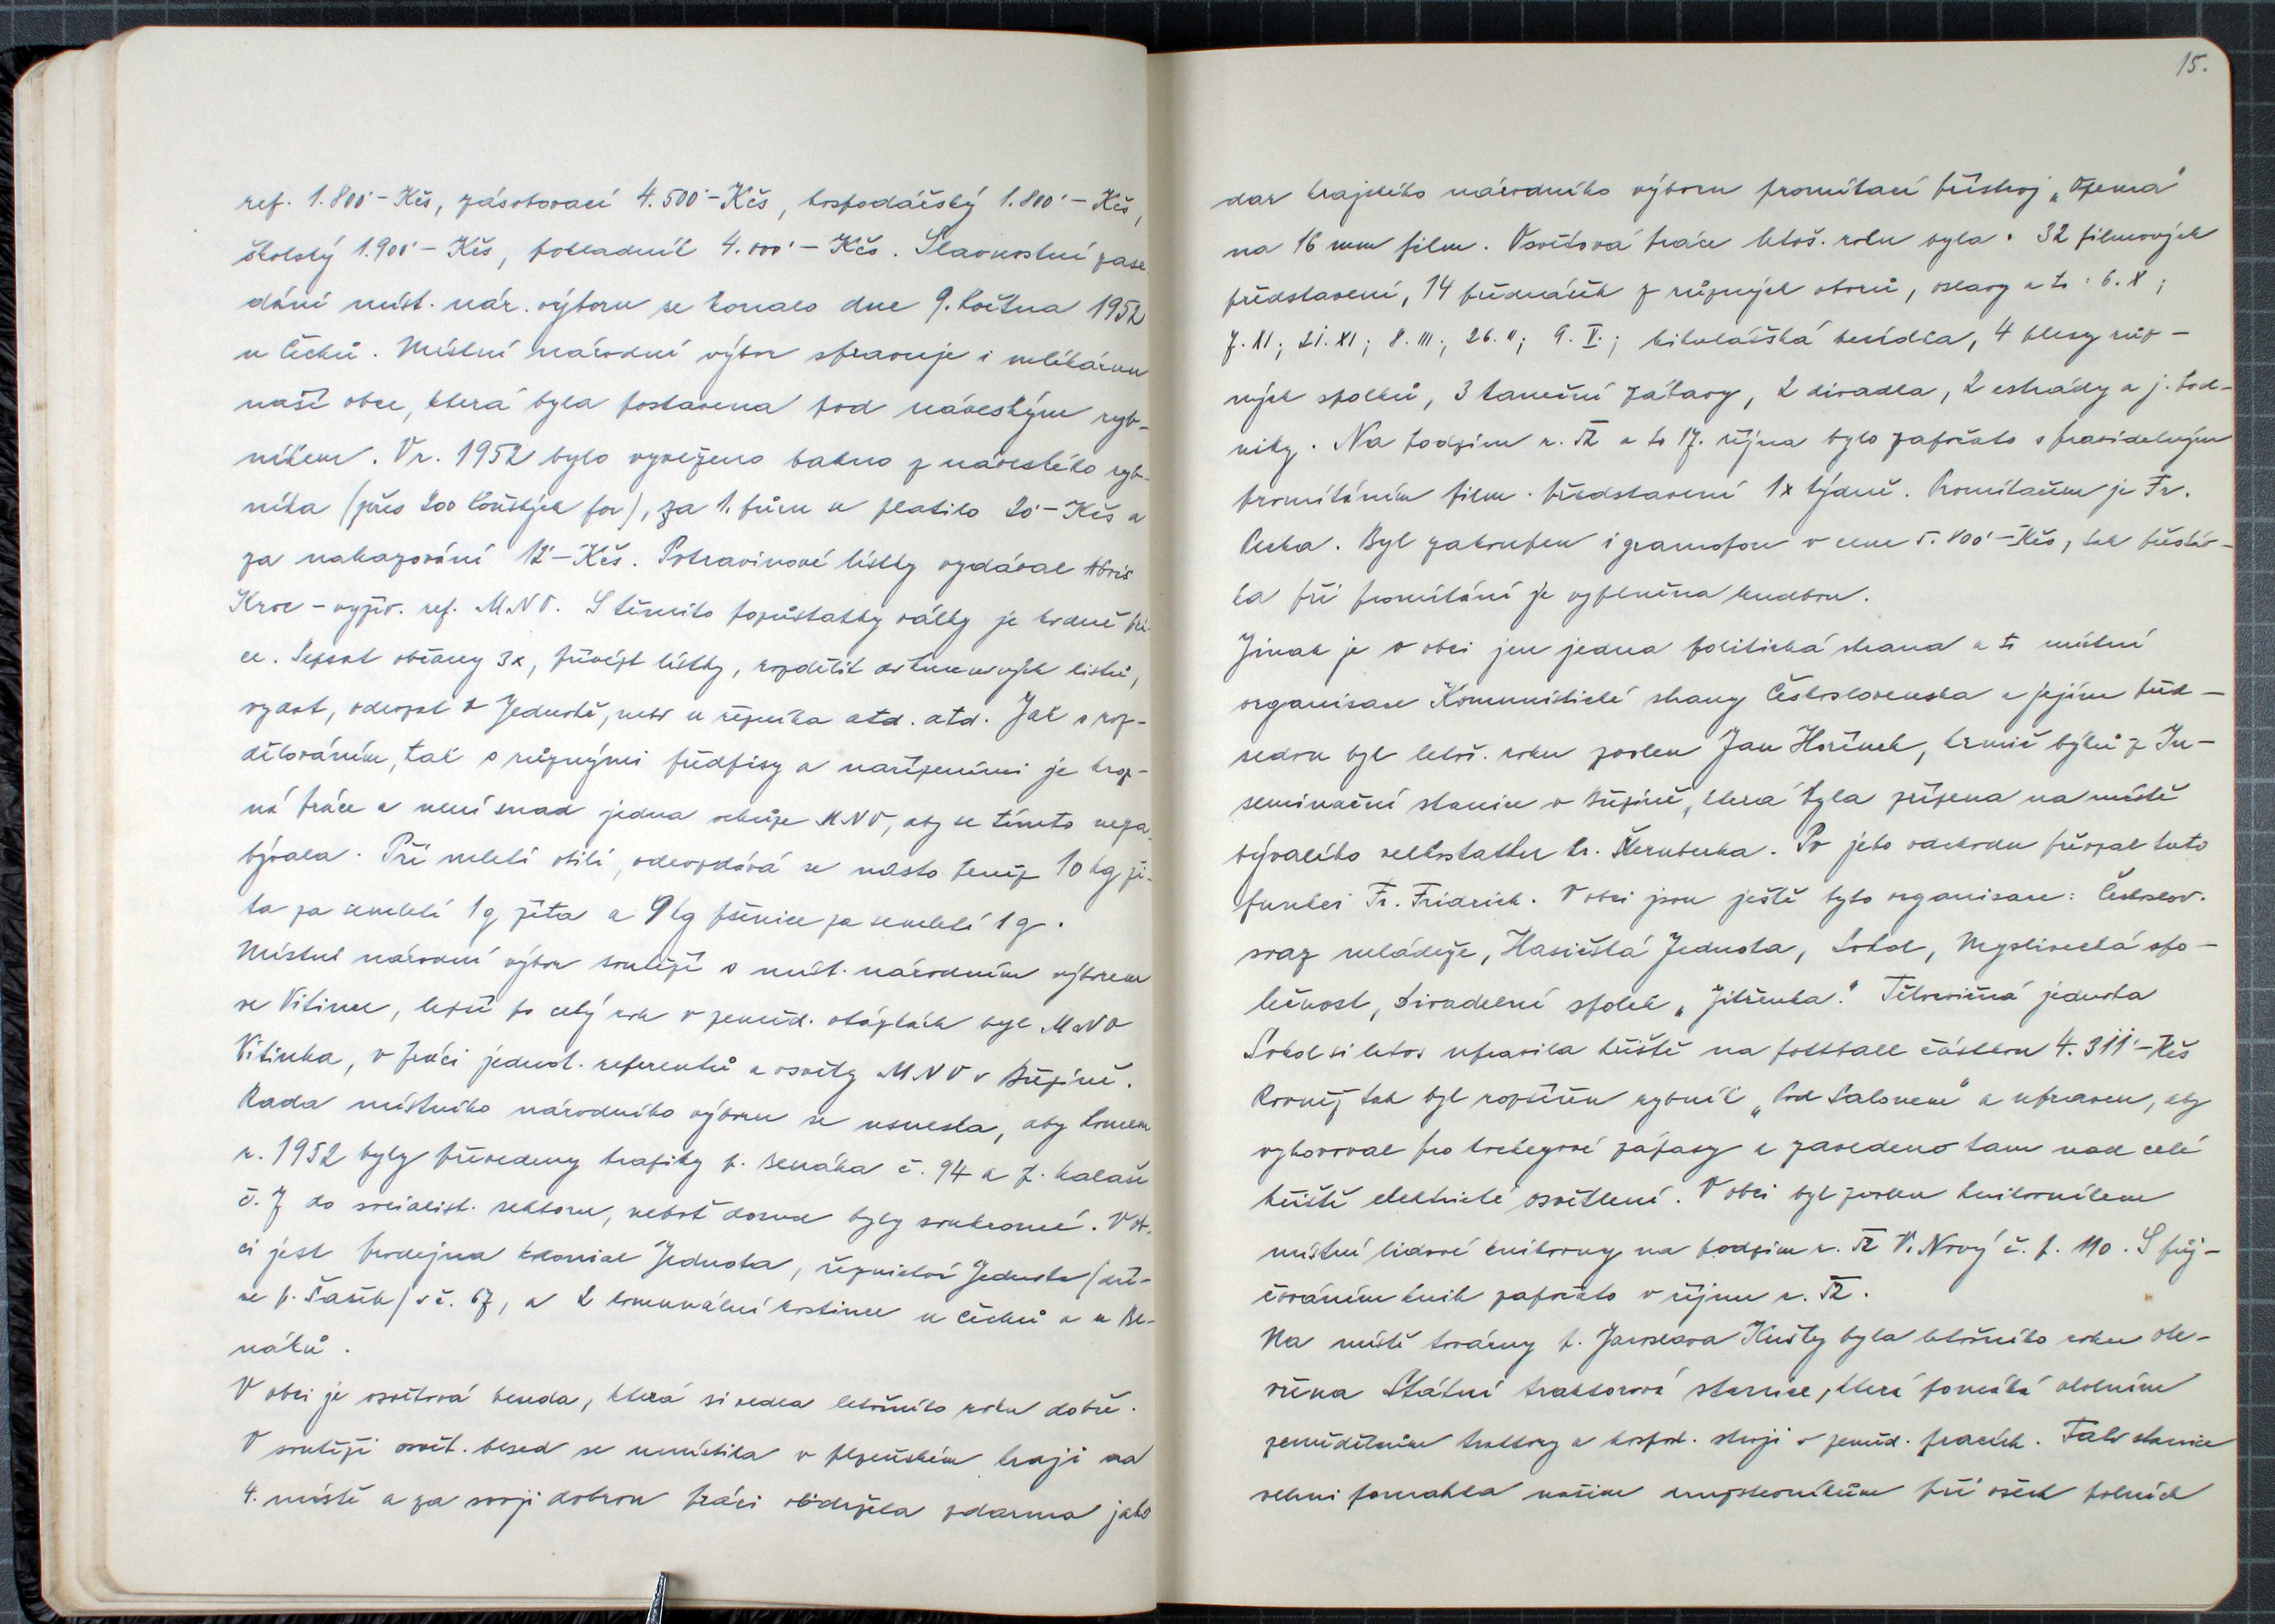 ref. 1.800'- Kčs, zásobovací 4.500'- Kčs, hospodářský 1.800'- Kčs,
školský 1.900'- Kčs, pokladník 4.000'- Kčs. Slavnostní zase-
dání míst. nár. výboru se konalo dne 9. května 1952
u Čechů. Místní národní výbor spravuje i mlékárnu
naší obce, která byla postavena pod náveským ryb-
níkem. V r. 1952 bylo vyvezeno bahno z náveského ryb-
níka (přes 200 koňských for), za 1. fůru se platilo 20'- Kčs a
za nakazování 12'- Kčs. Potravinové lístky vydával
Kroc - vyživ. ref. MNV. S těmito pozůstatky války je hodně prá-
ce. Sepsat občany 3x, přivézt lístky, rozdělit
vydat, odevzd v Jednotě, neb u řezníka atd. atd. Jak s roz-
dělováním, tak s různými předpisy a nařízeními je hroz-
ná práce a není snad jedna schůze MNV, aby se tímto neza-
bývala. Při mletí obilí, odevzdává se místo peněz 10 kg ži-
ta za semletí 1 q žita a 9 kg pšenice za semletí 1 q.
Místní národní výbor soutěží s míst. národním výborem
ve Vitince, lepší po celý rok v zeměd. otázkách byl MNV
Vitinka, v práci jednot. referentů a osvěty MNV v Březině.
Rada místního národního výboru se usnesla, aby koncem
r. 1952 byly převedeny trafiky p. Benáka č. 94 a p.
č. 7 do socialist. sektoru, neboť dosud byly soukromé. V ob-
ci jest prodejna kolonial Jednota, řeznictví Jednota (dří-
ve p. Šašek) v č. 67, a 2 komunální hostince u Čechů a u Be-
náků.
V obci je osvětová beseda, která si vedla letošního roku dobře.
V soutěži osvět. besed se umístila v plzeňském kraji na
4. místě a za svoji dobrou práci obdržela zdarma jako
15.
dar krajského národního výboru promítací přístroj "Opema"
na 16 mm film. Osvětová práce letoš. roku byla: 32 filmových
představení, 14 přednášek z různých oborů, oslavy a to: 6. X;
7. XI; 21. XI; 8. III; 26. II; 9. V.; besídka, 4 plesy růz-
ných spolků, 3 taneční zábavy, 2 divadla, 2 estrády a j. pod-
niky. Na podzim r. 52 a to 17. října bylo započato s pravidelným
promítáním film. představení 1x týdně. Promítačem je Fr.
Cecka. Byl zakoupen i gramofon v ceně 5.800'- Kčs, tak přestáv-
ka při promítání je vyplněna hudbou.
Jinak je v obci jen jedna politická strana a to místní
organisace Komunistické strany Československa a jejím před-
sedou byl letoš. roku zvolen Jan Hořínek, krmič býků z In-
seminační stanice v Březině, která byla zřízena na místě
bývalého velkostatku hr. Šternberka. Po jeho odchodu převzal tuto
funkci Fr. Fridrich. V obci jsou ještě tyto organisace: Českoslov.
svaz mládeže, Hasičská Jednota, Sokol, Myslivecká spo-
lečnost, Divadelní spolek "Jitřenka." Tělocvičná jednota
Sokol si letos upravila hřiště na football částkou 4.311'- Kčs
Rovněž tak byl rozšířen rybník "Pod Salonem" a upraven, aby
vyhovoval pro hockeyové zápasy a zavedeno tam nad celé
hřiště elektrické osvětlení. V obci byl zvolen knihovníkem
místní lidové knihovny na podzim r. 52 V. Nový č. p. 110. S půj-
čováním knih započato v říjnu r. 52.
Na místě továrny p. Jaroslava byla letošního roku ote-
vřena Státní traktorová stanice, která pomáhá okolním
zemědělcům traktory a hospod. stroji v zeměd. pracích. Tato stanice
velmi pomohla našim při všech polních